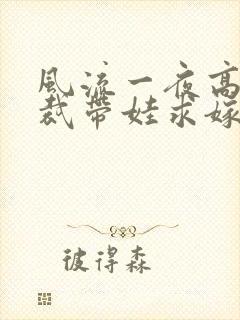 風流一夜高
裁帶娃求嫁
彼得森